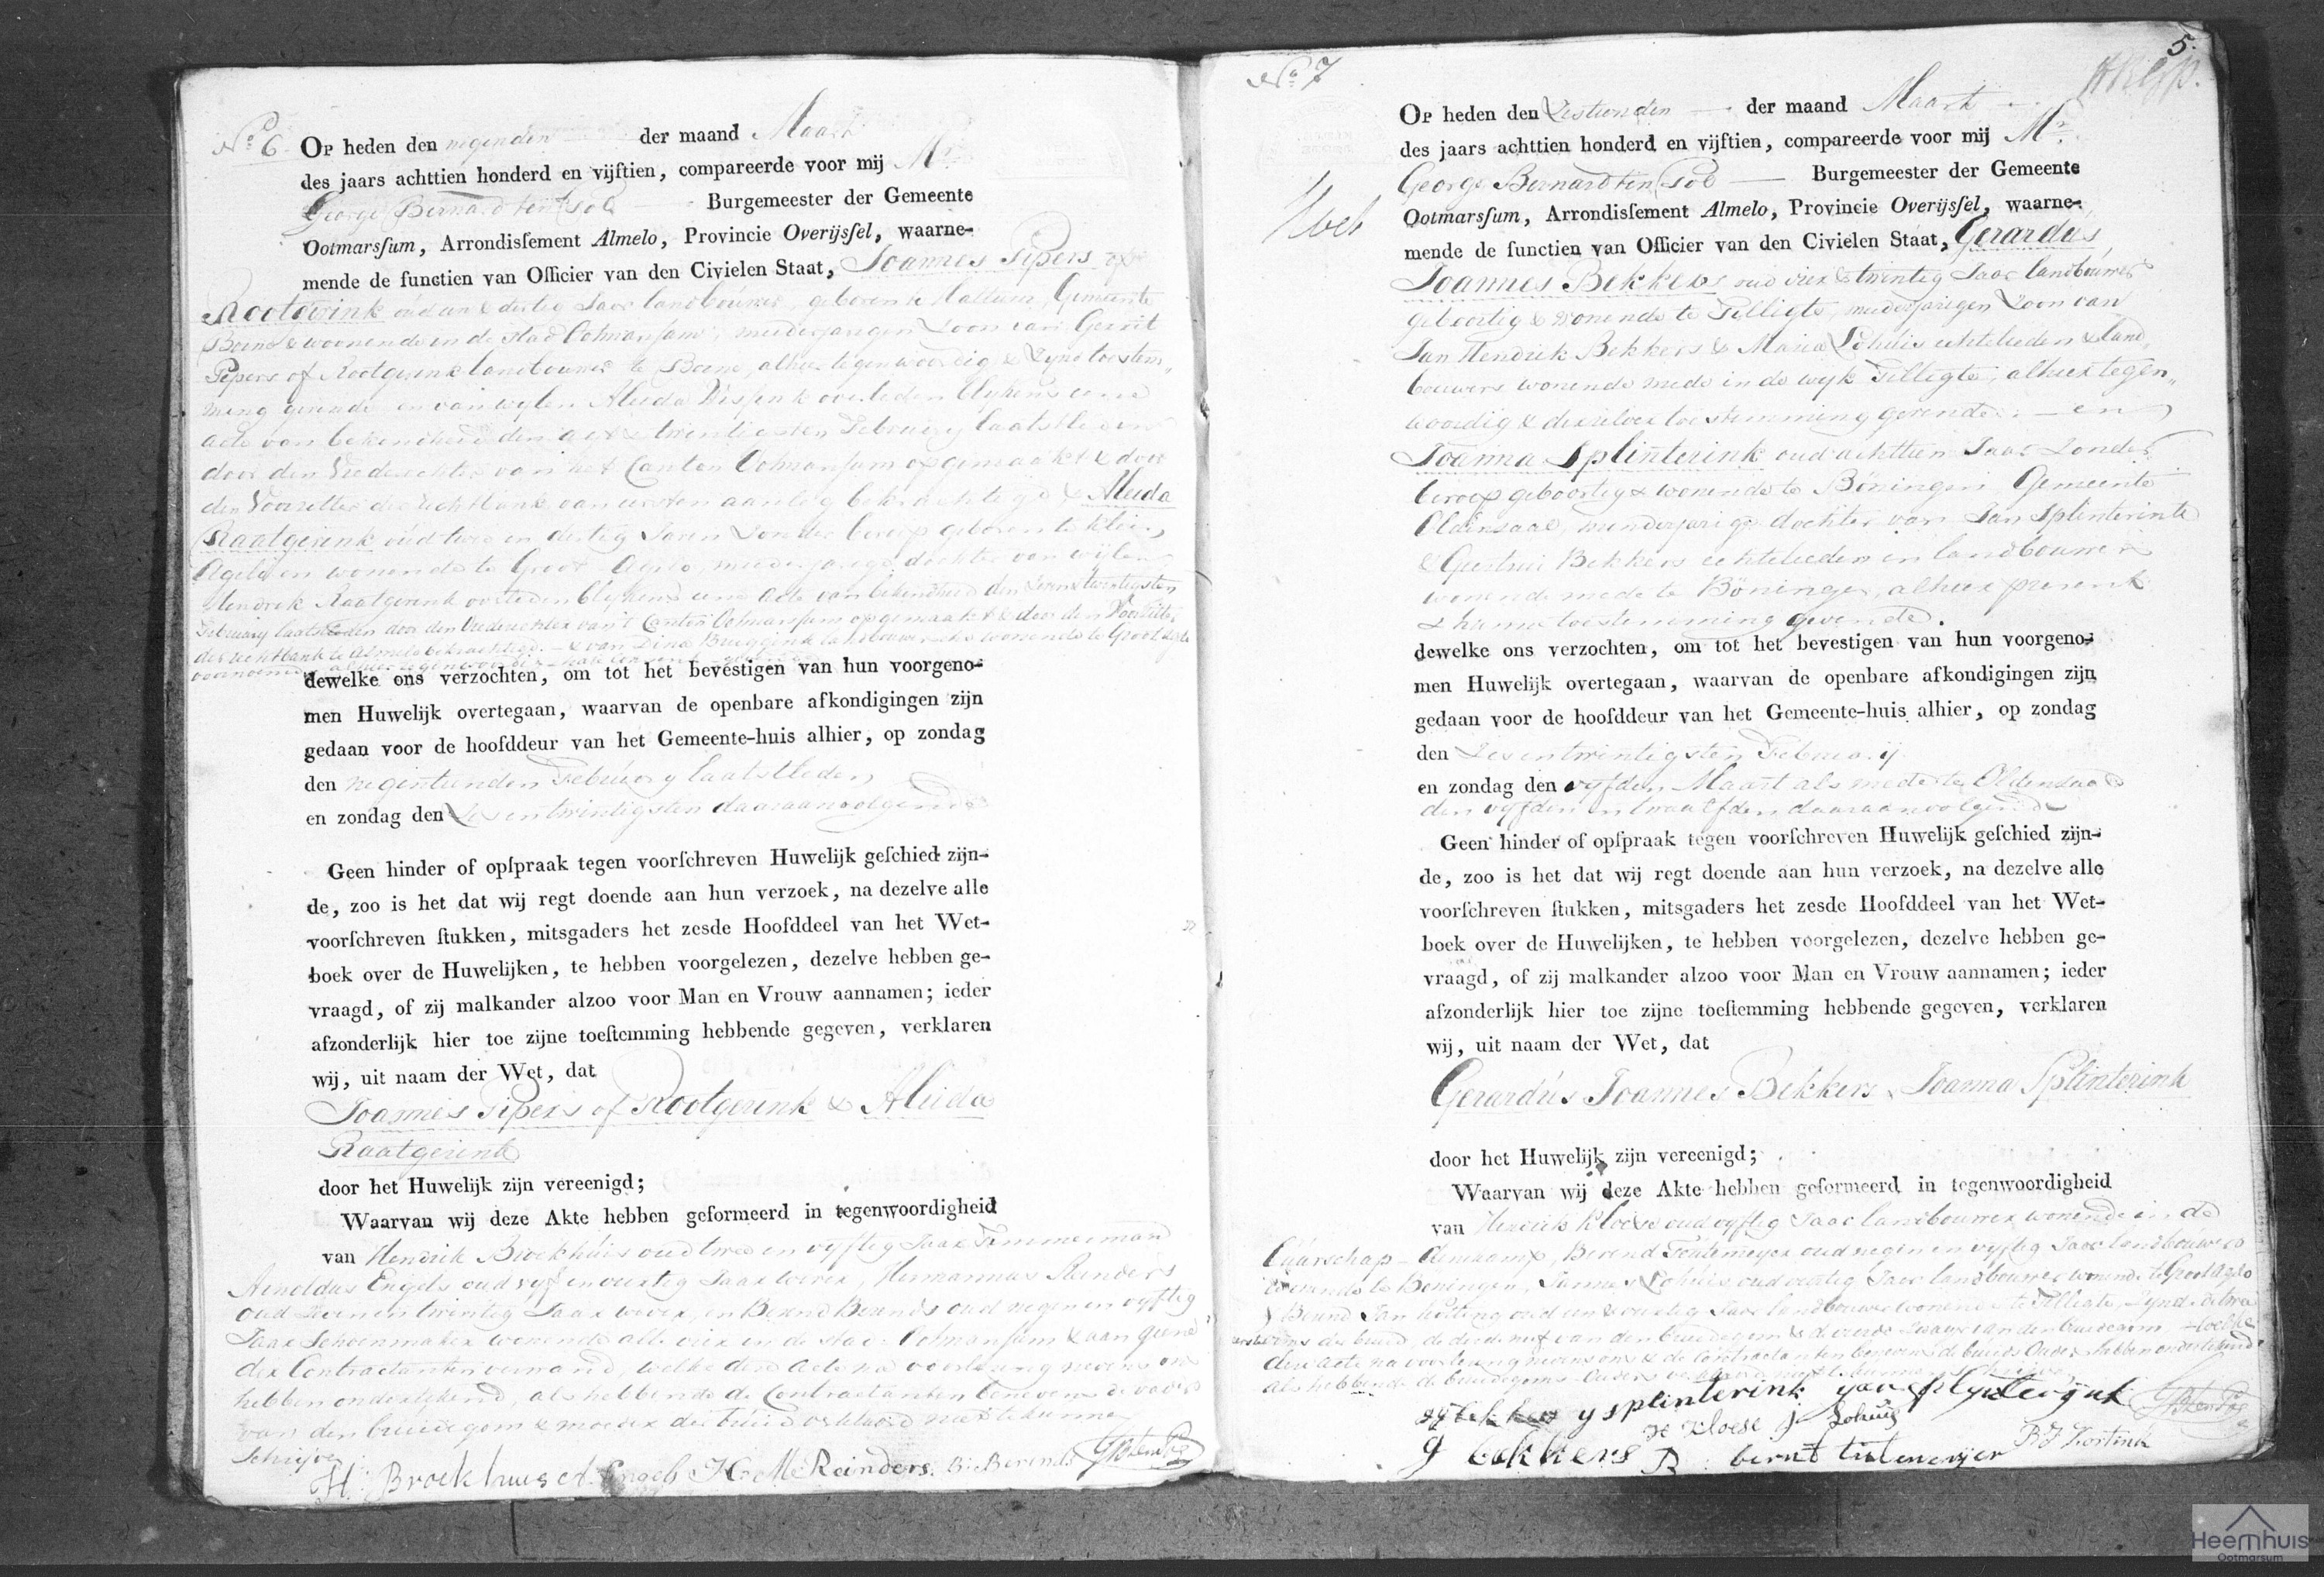 No. 6
Op heden den negenden der maand Maart
des jaars achttien honderd en vijftien, compareerde voor mij Mr.
George Bernard ten Pol Burgemeester der Gemeente
Ootmarsſum, Arrondisſement Almelo, Provincie Overijsſel, waarne-
mende de functien van Officier van den Civielen Staat, Joannes Pipers of
Rootgerink oud een & dertig Jaar landbouwer, geboren te Mattum, Gemeente
& woonende in de stad Ootmarsum, meerderjarigen Zoon van Gerrit
Pepers of Rootgerink landbouwer te alhier tegenwoordig & Zyne toestem„
ming gevende en van wylen Aleida overleden blykens eene
acte van bekendheid den agt & twintigsten February laatstleden
door den Vrederechter van het Canton Ootmarsum opgemaakt & door
den Voorzitter der rechtbank van eersten aanleg bekrachtigd & Aleida
Raatgerink oud twee en dertig Jaren Zonder beroep geboren te klein
Agelo en wonende te Groot Agelo, meerderjarige dochter van wijlen
Hendrik Raatgerink overleden blykens eene acte van bekendheid den
February laatstleden door den Vrederechter van 't Canton Ootmarsum opgemaakt & door den Voorzitter
der rechtbank te Almelo bekrachtigd. - & van Dina wonende te Groot Agelo
dewelke ons verzochten, om tot het bevestigen van hun voorgeno-
men Huwelijk overtegaan, waarvan de openbare afkondigingen zijn
gedaan voor de hoofddeur van het Gemeente-huis alhier, op zondag
den negentienden February laatstleden
en zondag den Zes en twintigsten daaraanvolgende
Geen hinder of opſpraak tegen voorſchreven Huwelijk geſchied zijn-
de, zoo is het dat wij regt doende aan hun verzoek, na dezelve alle
voorſchreven ſtukken, mitsgaders het zesde Hoofddeel van het Wet-
boek over de Huwelijken, te hebben voorgelezen, dezelve hebben ge-
vraagd, of zij malkander alzoo voor Man en Vrouw aannamen; ieder
afzonderlijk hier toe zijne toeſtemming hebbende gegeven, verklaren
wij, uit naam der Wet, dat
Joannes Pipers of Rootgerink & Aleida
Raatgerink
door het Huwelijk zijn vereenigd;
Waarvan wij deze Akte hebben geformeerd in tegenwoordigheid
van Hendrik Broekhuis oud twee en vyftig Jaar Timmerman
Arnoldus Engels oud vyf en veertig Jaar wever, Hermannus Reinders
oud Zeven en twintig Jaar wever, en Berend Berends oud negen en vyftig
Jaar Schoenmaker wonende alle vier in de stad Ootmarsum & aan geene
der Contractanten verwand, welke deze acte na voorlezing nevens ons
hebben ondertekend, als hebbende de Contractanten benevens de vader
van den bruidegom & moeder der bruid verklaard niet te kunnen
Schrijven
H. Broekhuis A. Engels H. M. Reinders. B. Berends
5.
No. 7
Op heden den Zestienden der maand Maart
des jaars achttien honderd en vijftien, compareerde voor mij Mr.
George Bernard ten Pol Burgemeester der Gemeente
Ootmarsſum, Arrondisſement Almelo, Provincie Overijsſel, waarne-
mende de functien van Officier van den Civielen Staat, Gerardus
Joannes Bekkers oud vier & twintig Jaar landbouwer
geboortig & wonende te Tilligte, meerderjarigen Zoon van
Jan Hendrik Bekkers & Maria Lohuis echtelieden & land„
bouwers wonende mede in de wijk Tilligte, alhier tegen„
woordig & derzelver toestemming gevende. - en
Joanna Splinterink oud achttien Jaar Zonder
beroep geboortig & wonende te Böningen Gemeente
Oldensaal, minderjarige dochter van Jan Splinterink
& Geertrui Bekkers echtelieden en landbouwers
wonende mede te Böningen, alhier present
& hunne toestemming gevende.
dewelke ons verzochten, om tot het bevestigen van hun voorgeno-
men Huwelijk overtegaan, waarvan de openbare afkondigingen zijn
gedaan voor de hoofddeur van het Gemeente-huis alhier, op zondag
den Zes en twintigsten February
en zondag den vyfden Maart als mede te Oldensaal
den vyfden en twaalfden daaraanvolgende
Geen hinder of opſpraak tegen voorſchreven Huwelijk geſchied zijn-
de, zoo is het dat wij regt doende aan hun verzoek, na dezelve alle
voorſchreven ſtukken, mitsgaders het zesde Hoofddeel van het Wet-
boek over de Huwelijken, te hebben voorgelezen, dezelve hebben ge-
vraagd, of zij malkander alzoo voor Man en Vrouw aannamen; ieder
afzonderlijk hier toe zijne toeſtemming hebbende gegeven, verklaren
wij, uit naam der Wet, dat
Gerardus Joannes Bekkers & Joanna Splinterink
door het Huwelijk zijn vereenigd;
Waarvan wij deze Akte hebben geformeerd in tegenwoordigheid
van Hendrik Kloese oud vyftig Jaar landbouwer wonende in de
Buurschap Berend oud negen en vyftig Jaar landbouwer
wonende te Beningen, Lohuis oud veertig Jaar landbouwer wonende te Groot Agelo
& Berend Jan oud een & veertig Jaar landbouwer wonende te Tilligte, Zynde de twee
eerste der bruid, de derde van den bruidegom & de vierde van den bruidegom welke
deze acte na voorlezing nevens ons & de contractanten benevens de bruids Ouders hebben ondertekend
als hebbende de bruidegoms Ouders verklaard niet te kunnen schrijven
Bekkers y splinterink
H Kloese J Lohuis
g bekkers B J Kortink
Heemhuis
Ootmarsum